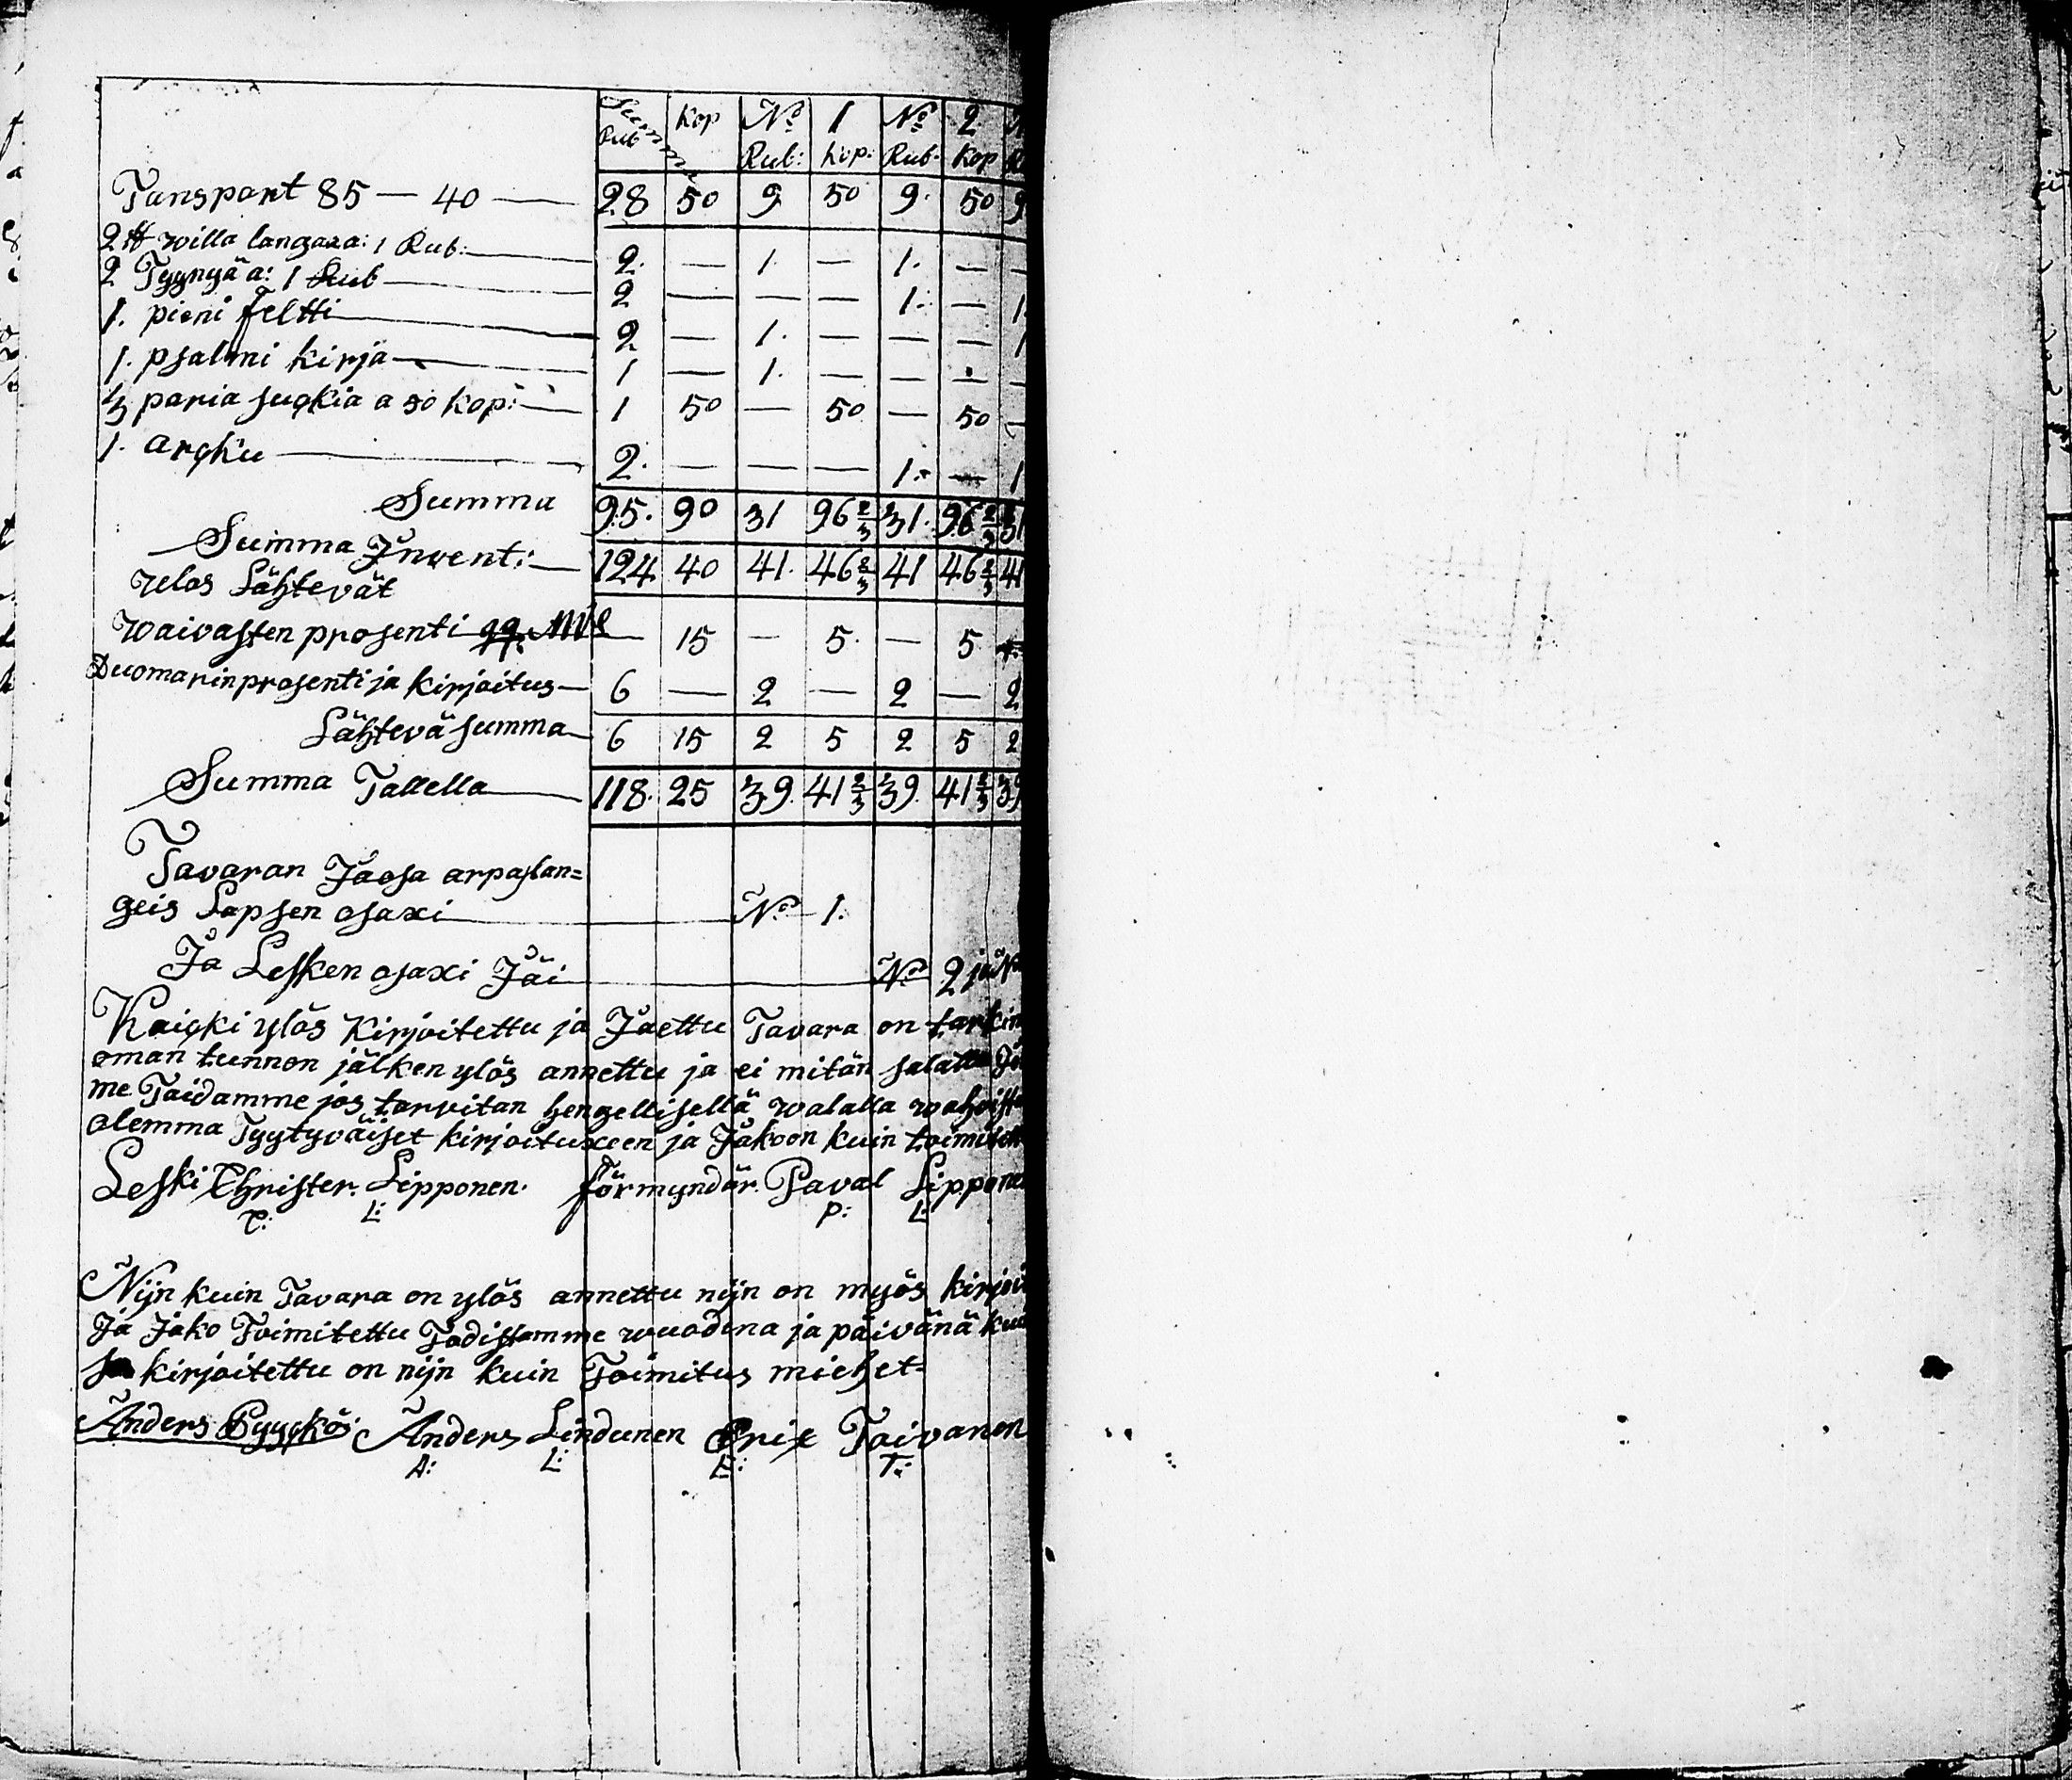 Summa Kop No 1 No 2
Rub Rub: kop: Rub. Kop
Tansport 85 — 40 — 28 50 9 50 9. 50 9
2 ℔ willa langara: 1 Rub: — 2. — 1. — 1. — —
2 Tyynyä a: 1 Rub — 2 — — — 1. — 1
1. pieni feltti — 2 — 1. — — — 1
1. psalmi kirja — 1 — 1. — — — —
3 paria sugkia a 50 kop: — 1 50 — 50 — 50 —
1. argku — 2. — — — 1. — 1
Summa 95. 90 31 96 2/3 31. 96 2/3 31
Summa Invent: — 124. 40 41. 46 2/3 41 46 2/3 41
Ulos Lähtevät
Waivasten prosenti — 15 — 5. — 5
Duomarinprosenti ja kirjoitus — 6 — 2 — 2 — 2
Lähtevä summa — 6 15 2 5 2 5 2
Summa Tallella — 118. 25 39. 41 2/3 39. 41 2/3 39
Tavaran Jaosa arpaslan=
geis Lapsen osaxi — No 1.
Ja Lesken osaxi Jäi — No 2 ja No
Kaigki ylös Kirjoitettu ja Jaettu Tavara on tarkin
oman tunnon jälken ylös annettu ja ei mitän salattu
me Taidamme jos tarvitan hengellisellä walalla
olemma Tyytyväiset kirjoituxeen ja Jakoon kuin
Leski Christer. Lipponen. förmyndär. Paval Lipponen
C: L: P: L:
Nijn kuin Tavara on ylös annettu nijn on myös
Ja Jako Toimitettu Todistamme wuodena ja päivänä
kirjoitettu on nijn kuin Toimitus miehet=
Anders Pyygkö. Anders Lindunen Eric Toivanen
A: L: E: T: